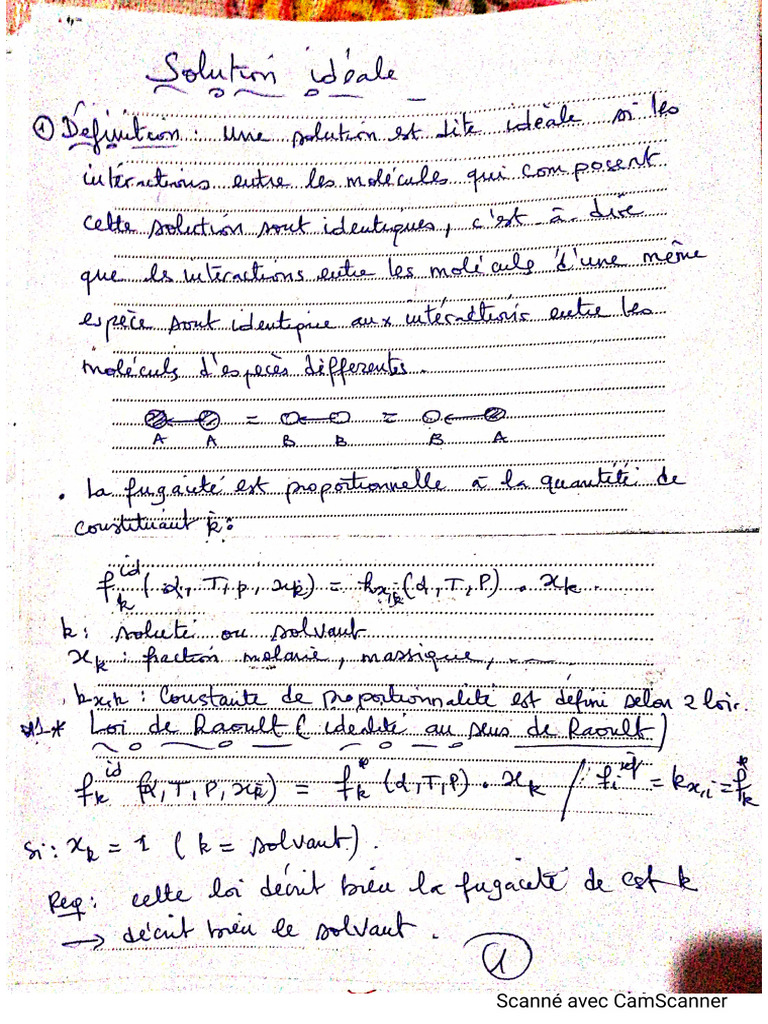 Solution idéale
① Définition : Une solution est dite idéale si les
intéractions entre les molécules qui composent
cette solution sont identiques, c'est à dire
que les interactions entre les moléculs d'une même
espèce sont identique aux intéractions entre les
moléculs d'espèces differentes.
= =
A A B B B A
• La fugacité est proportionnelle à la quantité de
constituant k :
f_k^id (α, T, p, x_k) = k_x,k (α, T, P) . x_k
k : soluté ou solvant
x_k : fraction molaire, massique,
k_x,k : Constante de proportionnalité est défini selon 2 loi.
*1* Loi de Raoult (idéalité au sens de Raoult)
f_k^id (α, T, P, x_k) = f_k^* (α, T, P) . x_k / f_i^réf = k_x,i = f_k^*
Si : x_k = 1 ( k = solvant ).
Req : cette loi décrit bien la fugacité de cst k
→ décrit bien le solvant.
①
Scanné avec CamScanner